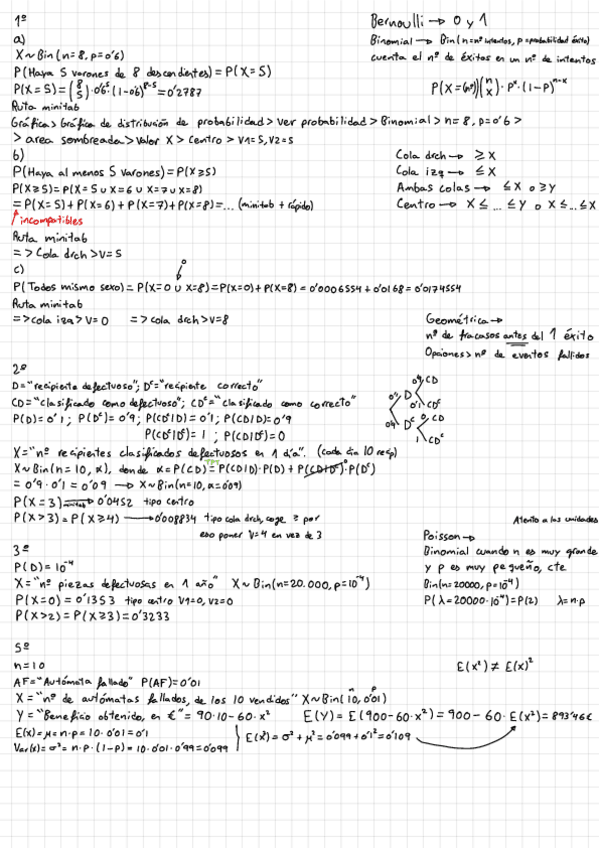 1º
Bernoulli → 0 y 1
a)
Binomial → Bin(n=nº intentos, p=probabilidad éxito)
X~Bin(n=8, p=0'6)
cuenta el nº de éxitos en un nº de intentos
P(Haya 5 varones de 8 descendientes) = P(X=5)
P(X=5) = (8 5)·0'6^5·(1-0'6)^8-5 = 0'2787
P(X=(nº))(n x)·p^x·(1-p)^n-x
Ruta minitab
Gráfica > Gráfica de distribución de probabilidad > Ver probabilidad > Binomial > n=8, p=0'6 >
> area sombreada > Valor X > Centro > V1=5, V2=5
b)
P(Haya al menos 5 varones) = P(X≥5)
P(X≥5) = P(X=5 ∪ X=6 ∪ X=7 ∪ X=8)
= P(X=5) + P(X=6) + P(X=7) + P(X=8) = ... (minitab + rápido)
incompatibles
Cola drch → ≥X
Cola izq → ≤X
Ambas colas → ≤X o ≥Y
Centro → X≤ ... ≤Y o X≤ ... ≤X
Ruta minitab
=> Cola drch > V=5
c)
o
P(Todos mismo sexo) = P(X=0 ∪ X=8) = P(X=0) + P(X=8) = 0'0006554 + 0'0168 = 0'0174554
Ruta minitab
=> cola izq > V=0 => cola drch > V=8
Geométrica →
nº de fracasos antes del 1 éxito
Opciones > nº de eventos fallidos
2º
D="recipiente defectuoso"; D^c="recipiente correcto"
CD="clasificado como defectuoso"; CD^c="clasificado como correcto"
P(D)=0'1; P(D^c)=0'9; P(CD^c|D)=0'1; P(CD|D)=0'9
P(CD^c|D^c)=1; P(CD|D^c)=0
0'9 CD
D
0'1 CD^c
D^c
0 CD
1 CD^c
X="nº recipientes clasificados defectuosos en 1 día". (cada día 10 recip)
X~Bin(n=10, α), donde α=P(CD)=P(CD|D)·P(D)+P(CD|D^c)·P(D^c)
= 0'9·0'1 = 0'09 → X~Bin(n=10, α=0'09)
P(X=3) minitab → 0'0452 tipo centro
P(X>3) = P(X≥4) → 0'008834 tipo cola drch, coge ≥ por
eso poner V=4 en vez de 3
Atento a las unidades
3º
P(D)=10^-4
X="nº piezas defectuosas en 1 año" X~Bin(n=20.000, p=10^-4)
P(X=0)=0'1353 tipo centro V1=0, V2=0
P(X>2)=P(X≥3)=0'3233
Poisson →
Binomial cuando n es muy grande
y p es muy pequeño, cte
Bin(n=20000, p=10^-4)
P(λ=20000·10^-4)=P(2) λ=n·p
5º
n=10
E(x²)≠E(x)²
AF="Autómata fallado" P(AF)=0'01
X="nº de autómatas fallados, de los 10 vendidos" X~Bin(10, 0'01)
Y="Beneficio obtenido, en €" = 90·10-60·x² E(Y)=E(900-60·x²)=900-60·E(x²)=893'46€
E(x)=μ=n·p=10·0'01=0'1
Var(x)=σ²=n·p·(1-p)=10·0'01·0'99=0'099
E(x²)=σ²+μ²=0'099+0'1²=0'109